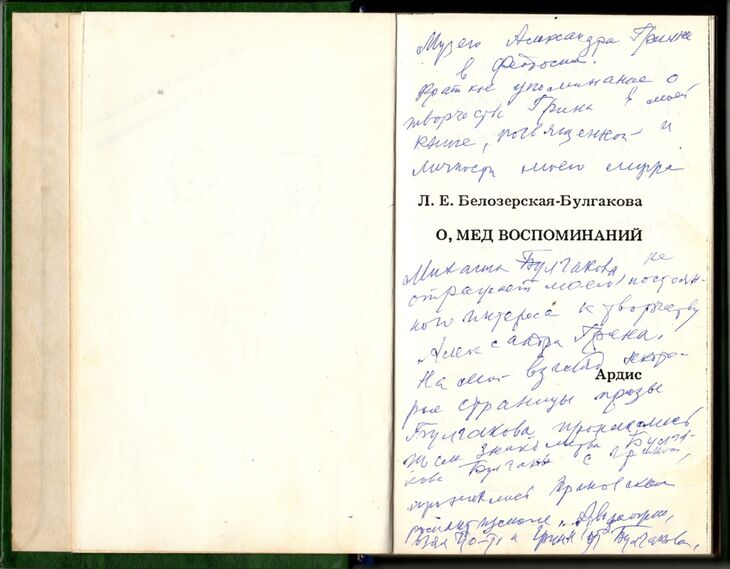 Музею Александра Грина
в Феодосии.
Краткое упоминание о
творчестве Грина в моей
книге, посвященной и
личности моего мужа
Л. Е. Белозерская-Булгакова
О, МЕД ВОСПОМИНАНИЙ
Михаила Булгакова не
отражает моего постоян-
ного интереса к творчеству
Александра Грина.
На мой взгляд некото-
Ардис
рые страницы прозы
Булгакова
знакомства
Булгакова с Грином,
Грин Булгакова,